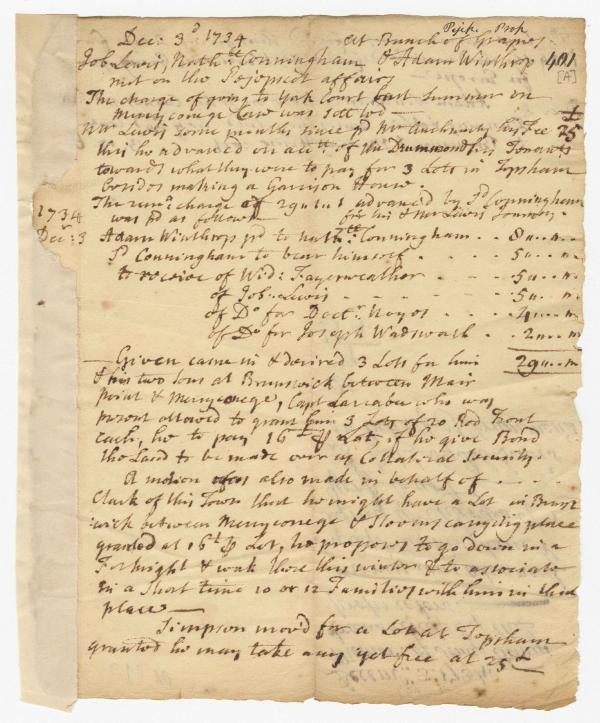 Pejt. Prop
Dec: 3d 1734 at Bunch of Grapes.
Job Lewis, Nathll Conningham & Adam Winthrop 401
met on the Pejepscot affairs [A]
The charge of going to York Court last Summer on
Merryconege Case was settled — £
Mr Lewis some months since pd Mr Auchmuty his Fee 25
this he advanced on acctt of the Drummonds &c Tenants
towards what they were to pay for 3 Lots in Topsham
besides making a Garrison House.
The remg charge of 29"1"1 advanced by sd Conningham
was pd as follows for his & Mr Lewis Journey.
1734
Decr: 3 Adam Winthrop pd to Nathll Conningham . . 8"..".
sd Conningham to bear himself . . . 5"..".
to receive of Wid: Fayerweather . . . 5"..".
of Job: Lewis - - - - 5"..".
of Do for Doctr. Noyes . . 4"..".
of Do for Joseph Wadsworth . . 2"..".
— Given came in & desired 3 Lots for him 29"..".
& his two sons at Brunswick between Mair
point & Merryconege, Capt Larrabee who was
present allowed to grant him 3 Lots of 20 Rod Front
each, he to pay 16£ ⅌ Lot, if he give Bond
the Land to be made over as Collateral Security.
A motion was also made in behalf of . . . .
Clark of this Town that he might have a Lot in Bruns
:wick between Merryconege & Stevens carrying place
granted at 16£ ⅌ Lot, he proposes to go down in a
Fortnight & work there this winter & to associate
in a short time 10 or 12 Families with him in that
place —
Simpson mov'd for a Lot at Topsham
granted he may take any yet free at 25£